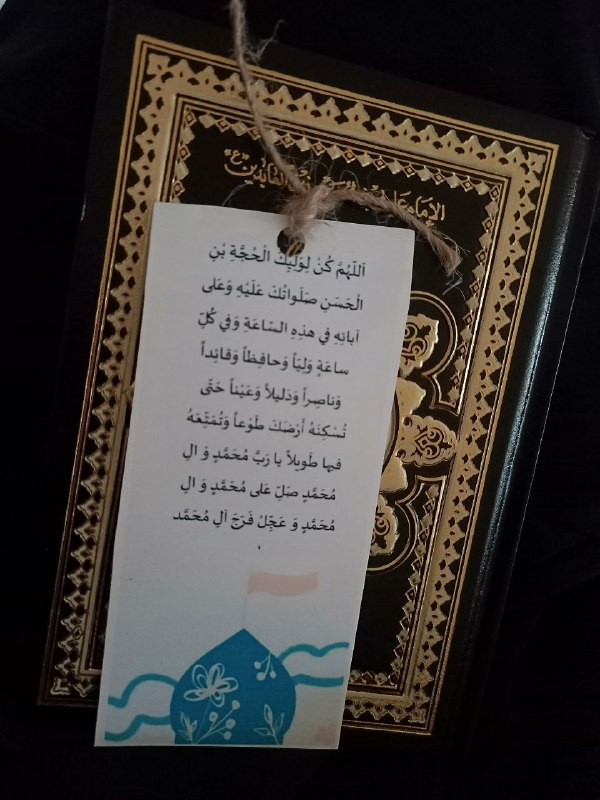 الإمام
العابدين
اَللّهُمَّ كُنْ لِوَلِيِّكَ الْحُجَّةِ بْنِ
الْحَسَنِ صَلَواتُكَ عَلَيْهِ وَعَلى
آبائِهِ في هذِهِ السّاعَةِ وَفي كُلِّ
ساعَةٍ وَلِيّاً وَحافِظاً وَقائِداً
وَناصِراً وَدَليلاً وَعَيْناً حَتّى
تُسْكِنَهُ أَرْضَكَ طَوْعاً وَتُمَتِّعَهُ
فيها طَويلاً يا رَبَّ مُحَمَّدٍ وَ الِ
مُحَمَّدٍ صَلِّ عَلى مُحَمَّدٍ وَ الِ
مُحَمَّدٍ وَ عَجِّلْ فَرَجَ آلِ مُحَمَّد